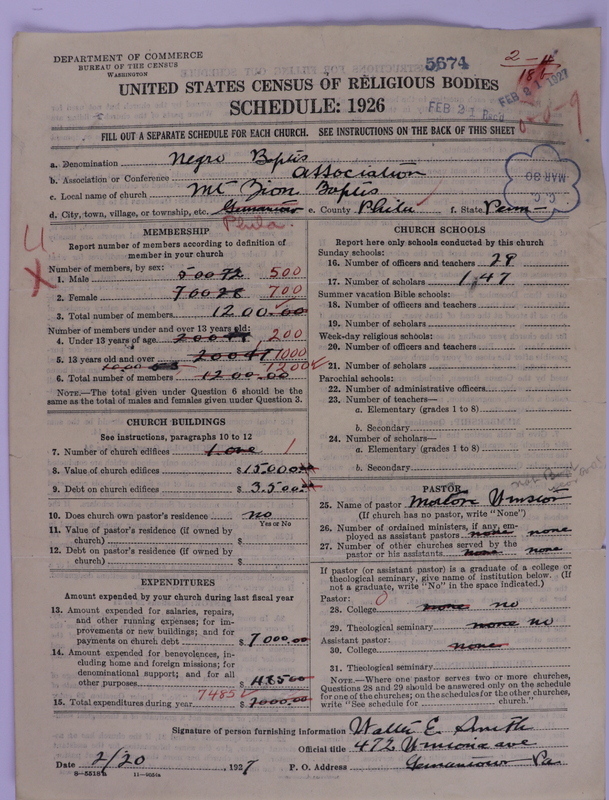 DEPARTMENT OF COMMERCE
BUREAU OF THE CENSUS
WASHINGTON
5674
2-4
186
FEB 21 1927
FEB 21 Rec'd
UNITED STATES CENSUS OF RELIGIOUS BODIES
SCHEDULE: 1926
FILL OUT A SEPARATE SCHEDULE FOR EACH CHURCH. SEE INSTRUCTIONS ON THE BACK OF THIS SHEET
a. Denomination Negro Baptis
b. Association or Conference Association
c. Local name of church Mt Zion Baptis
C. C. MAR 30
d. City, town, village, or township, etc. Germantown e. County Phila f. State Penn-
Phila.
MEMBERSHIP
Report number of members according to definition of
member in your church
Number of members, by sex:
1. Male 500 72 500
2. Female 700 28 700
3. Total number of members 1200.00
Number of members under and over 13 years old:
4. Under 13 years of age 200 200
5. 13 years old and over 200 47 1000
1200
6. Total number of members 1200.00
NOTE.—The total given under Question 6 should be
same as the total of males and females given under Question 3.
CHURCH BUILDINGS
See instructions, paragraphs 10 to 12
7. Number of church edifices 1 one 1
8. Value of church edifices $ 15000.00
9. Debt on church edifices $ 3500.00
10. Does church own pastor's residence no
Yes or No
11. Value of pastor's residence (if owned by
church) $
12. Debt on pastor's residence (if owned by
church) $
EXPENDITURES
Amount expended by your church during last fiscal year
13. Amount expended for salaries, repairs,
and other running expenses; for im-
provements or new buildings; and for
payments on church debt $ 7000.00
14. Amount expended for benevolences, in-
cluding home and foreign missions; for
denominational support; and for all
other purposes $ 485.00
7485
15. Total expenditures during year $ 7000.00
CHURCH SCHOOLS
Report here only schools conducted by this church
Sunday schools:
16. Number of officers and teachers 29
17. Number of scholars 147
Summer vacation Bible schools:
18. Number of officers and teachers
19. Number of scholars
Week-day religious schools:
20. Number of officers and teachers
21. Number of scholars
Parochial schools:
22. Number of administrative officers
23. Number of teachers—
a. Elementary (grades 1 to 8)
b. Secondary
24. Number of scholars—
a. Elementary (grades 1 to 8)
b. Secondary
PASTOR
25. Name of pastor Morton Winston
(If church has no pastor, write "None")
26. Number of ordained ministers, if any, em-
ployed as assistant pastors none none
27. Number of other churches served by the
pastor or his assistants none none
If pastor (or assistant pastor) is a graduate of a college or
theological seminary, give name of institution below. (If
not a graduate, write "No" in the space indicated.)
Pastor: 0
28. College none no
29. Theological seminary none no
Assistant pastor:
30. College none
31. Theological seminary
NOTE.—Where one pastor serves two or more churches,
Questions 28 and 29 should be answered only on the schedule
for one of the churches; on the schedules for the other churches,
write "See schedule for church."
Signature of person furnishing information Walter E. Smith
Official title 472 Winona ave
Date 2/20 1927 P. O. Address Germantown Pa.
8—5518a 11—9034a